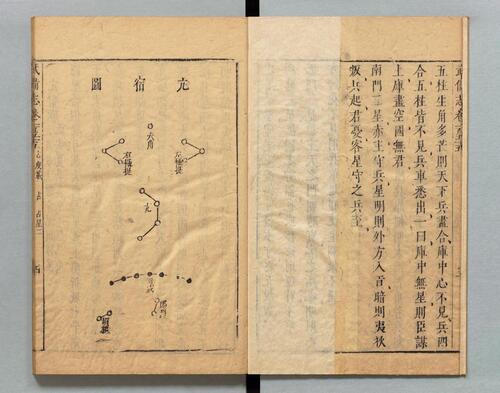 五柱生角多芒則天下兵盡合庫中心不見兵四
合五柱皆不見兵車悉出一曰庫中無星則臣謀
上庫盡空國無君
南門二星亦主守兵星明則外方入貢暗則夷狄
叛兵起君憂客星守之兵至
亢宿圖
大角
左攝提
右攝提
亢
折威
陽門
頓頑
武備志卷
占度載 占 占星二